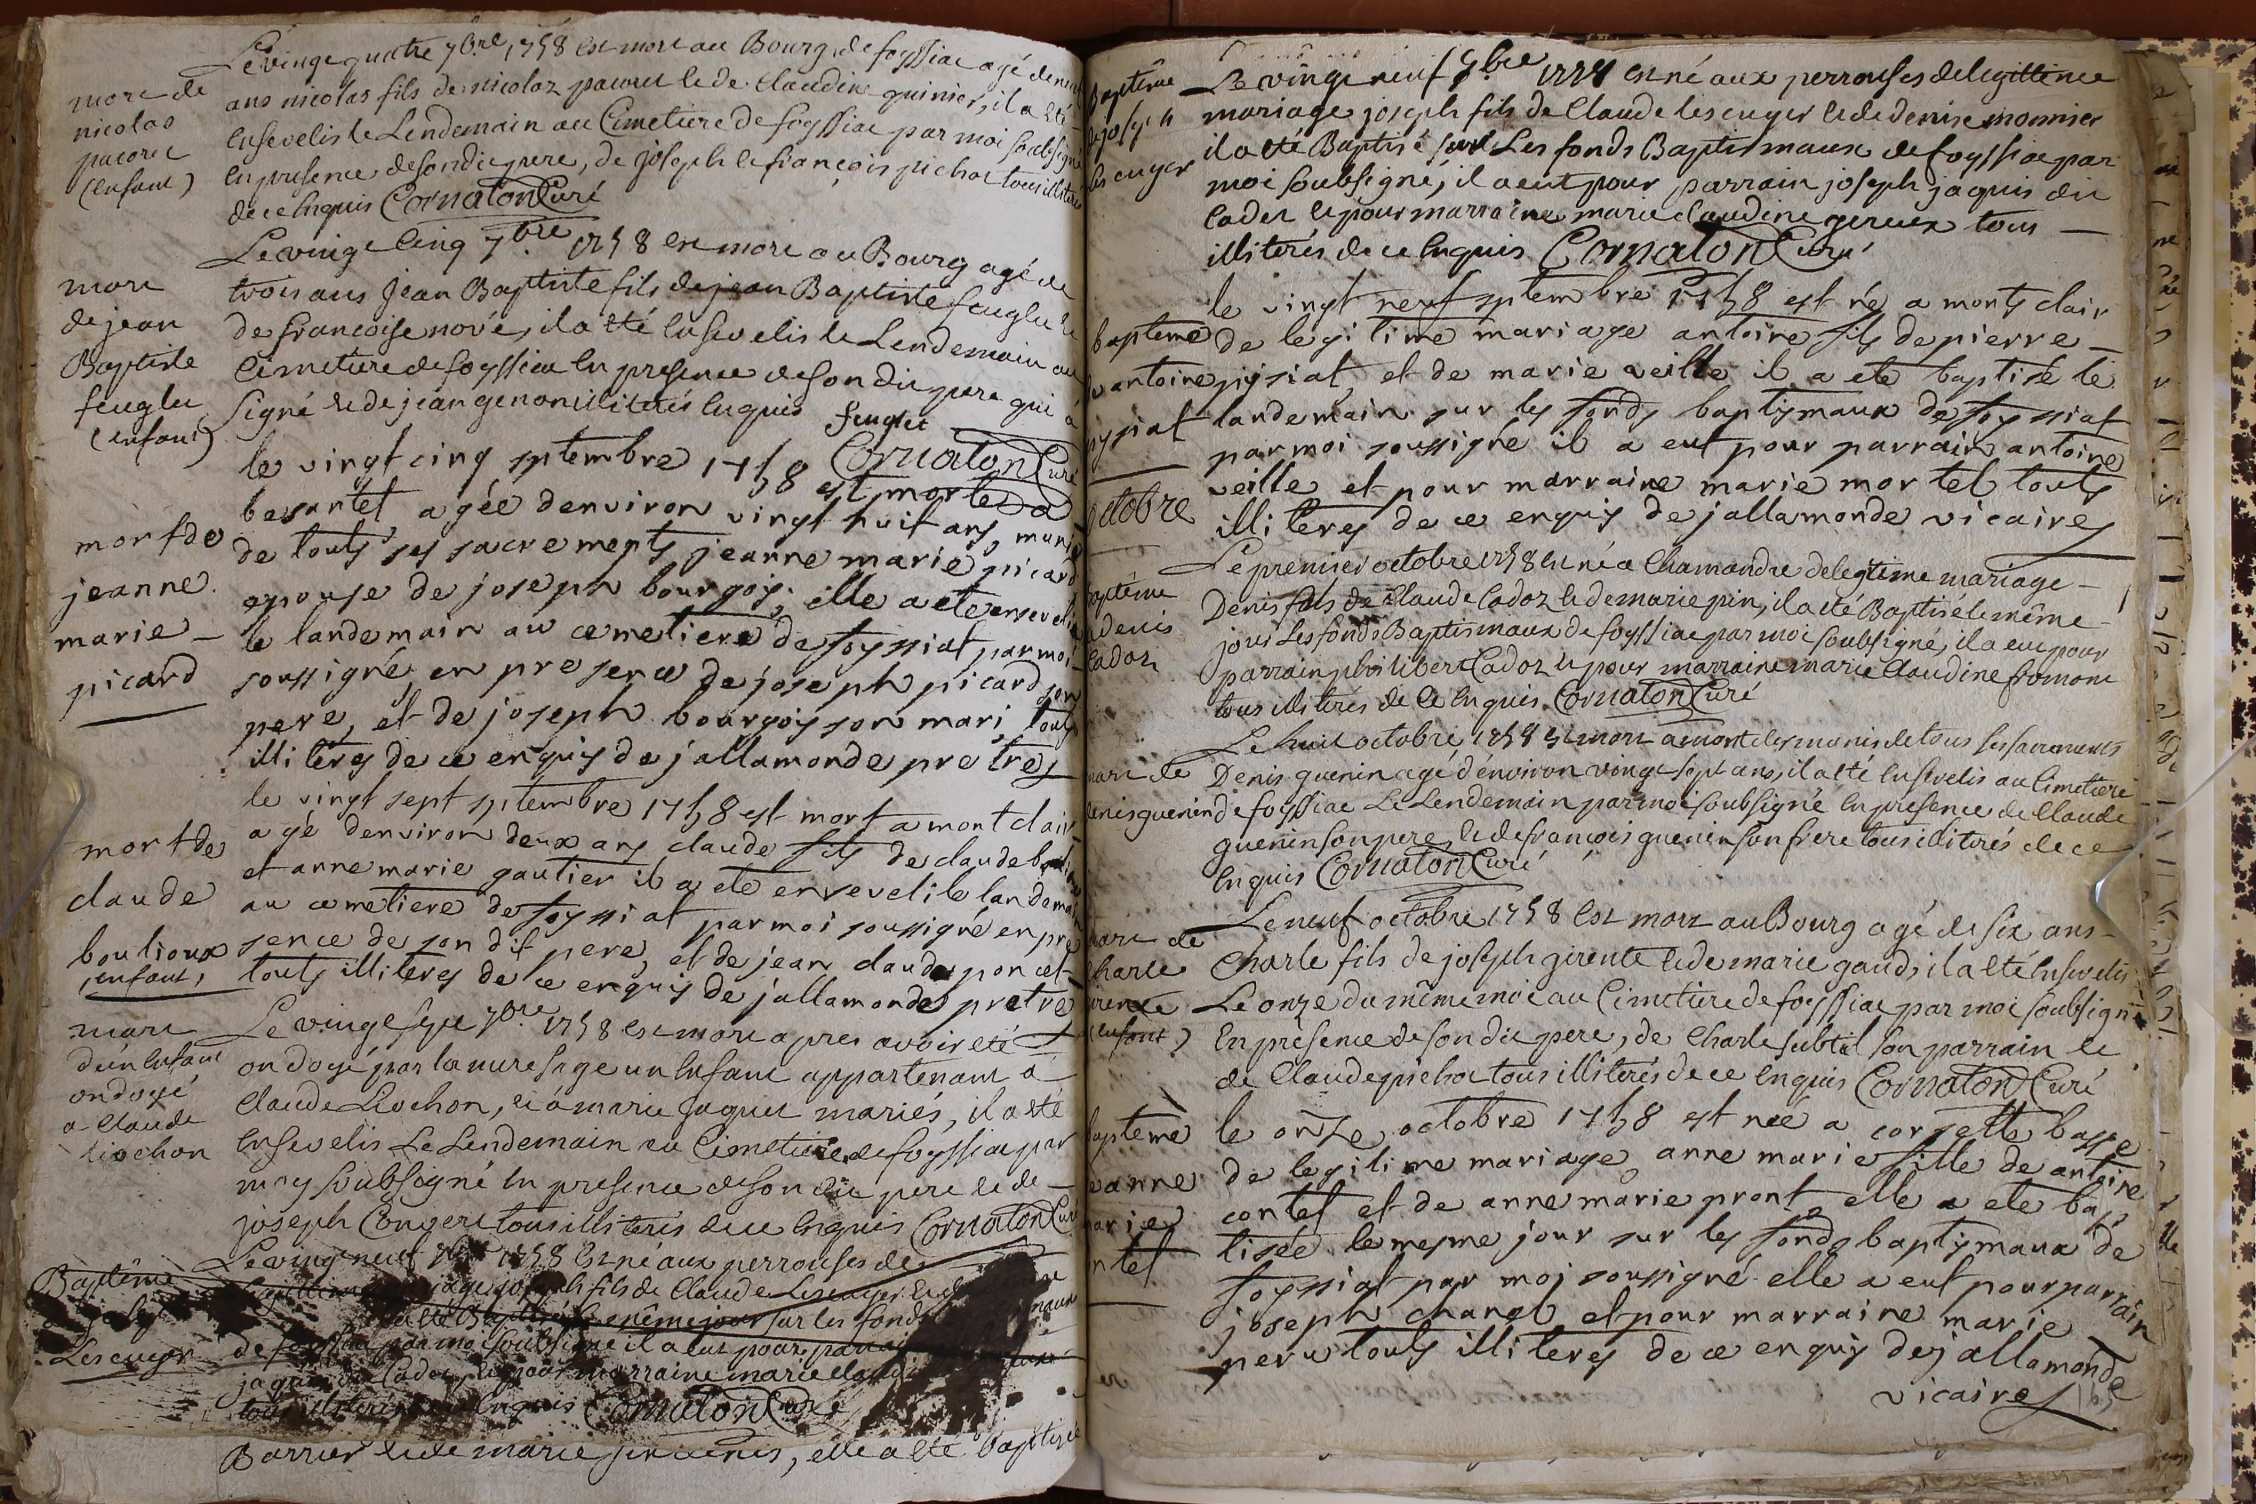 Le vingt quatre 7bre 1758 est mort au Bourg de foyssiat agé de neuf
mort de
nicolas
pacoret
(enfant)
ans nicolas fils de nicolas pacout et de Claudine guinier, il a été
Ensevelis le Lendemain au Cimetiere de foyssiat par moi soubsigné
En presence de son dit pere, de joseph et françois pichot tous illiterés
de ce Enquis Cornaton Curé
Le vingt cinq 7bre 1758 est mort au Bourg agé de
mort
de jean
Baptiste
feuglet
(enfant)
trois ans Jean Baptiste fils de jean Baptiste feuglet et
de francoise noré, il a été Ensevelis le Lendemain au
Cimetiere de foyssiat En presence de son dit pere qui a
Signé et de jean genon illiterés Enquis feuglet
Cornaton Curé
le vingt cinq septembre 1758 est morte a
mort de
jeanne
marie
picard
bevantet agée denviron vingt huit ans, munie
de touts ses sacrements jeanne marie picard
epouse de joseph bourgois, elle a ete ensevelie
le landemain au cemetiere de foyssiat par moi
soussigné en presence de joseph picard son
pere, et de joseph bourgois son mari, touts
illiteres de ce enquis dejallamonde pretre
le vingt sept septembre 1758 est mort a montclair
mort de
claude
boulioux
(enfant)
agé denviron deux ans claude fils de claude boulioux
et anne marie gautier il a ete enseveli le landemain
au cemetiere de foyssiat par moi soussigné en pre
sence de son dit pere, et de jean claude poncet
touts illiteres de ce enquis dejallamonde pretre
Le vingt sept 7bre 1758 est mort apres avoir eté
mort
d'un Enfant
ondoyé
a Claude
Liochon
ondoyé par la mere sage un Enfant appartenant a
Claude Liochon, et a marie Jaquet mariés, il a été
Ensevelis Le Lendemain au Cimetiere de foyssiat par
moy soubsigné En presence de son dit pere et de
joseph Convert tous illiterés de ce Enquis Cornaton Curé
Le vingt neuf 7bre 1758 Est né aux perrouses de
Baptême
Lescuyer
joseph fils de Claude Lescuyer et de
a été Baptisé le même jour sur les fonds
de foyssiat par moi soubsigné il a eut pour parrain
jaquis dit Cadet, et pour marraine marie Claudine
tous illiterés de ce Enquis Cornaton Curé
Barrier et de marie, elle a été baptisée
Le vingt neuf 7bre 1758 est né aux perrouses de legittime
Baptême
de joseph
Lescuyer
mariage joseph fils de Claude lescuyer et de denise monnier
il a été Baptisé sur Les fonds Baptismaux de foyssiat par
moi soubsigné, il a eut pour parrain joseph jaquis dit
Cadet et pour marraine marie Claudine gereux tous
illiterés de ce Enquis Cornaton Curé
le vingt neuf septembre 1758 est né a monts clair
bapteme
de antoine
pysiat
de legitime mariage antoine fils de pierre
pysiat et de marie veille il a ete baptisé le
landemain sur les fonds baptismaux de foyssiat
par moi soussigné il a eut pour parrain antoine
veille et pour marraine marie mortel touts
illiteres de ce enquis dejallamonde vicaire
octobre
Le premier octobre 1758 Est né a Chamandre de legitime mariage
Baptême
denis
Cadoz
Denis fils de Claude Cadoz et de marie pin, il a été Baptisé le même
jour Les fonds Baptismaux de foyssiat par moi soubsigné, il a eut pour
parrain philibert Cadoz et pour marraine marie Claudine fromont
tous illiterés de ce Enquis Cornaton Curé
Le huit octobre 1758 est mort a montclez munis de tous ses sacrements
mort de
denis guenin
Denis guenin agé d'environ vingt sept ans, il a été Ensevelis au Cimetiere
de foyssiat Le Lendemain par moi soubsigné En presence de Claude
guenin son pere, et de francois guenin son frere tous illiterés de ce
Enquis Cornaton Curé
Le neuf octobre 1758 Est mort au Bourg agé de six ans
mort de
Charle
girente
(Enfant)
Charle fils de joseph girente et de marie gaud, il a été Ensevelis
Le onze du même mois au Cimetiere de foyssiat par moi soubsigné
En presence de son dit pere, de Charle subtil son parrain et
de Claude pichot tous illiterés de ce Enquis Cornaton Curé
le onze octobre 1758 est née a corzette basse
bapteme
anne
marie
contet
de legitime mariage anne marie fille de antoine
contet et de anne marie pront elle a ete bap
tisée le mesme jour sur les fonds baptismaux de
foyssiat par moi soussigné elle a eut pour parrain
joseph charel, et pour marraine marie
peru touts illiteres de ce enquis dejallamonde
vicaire